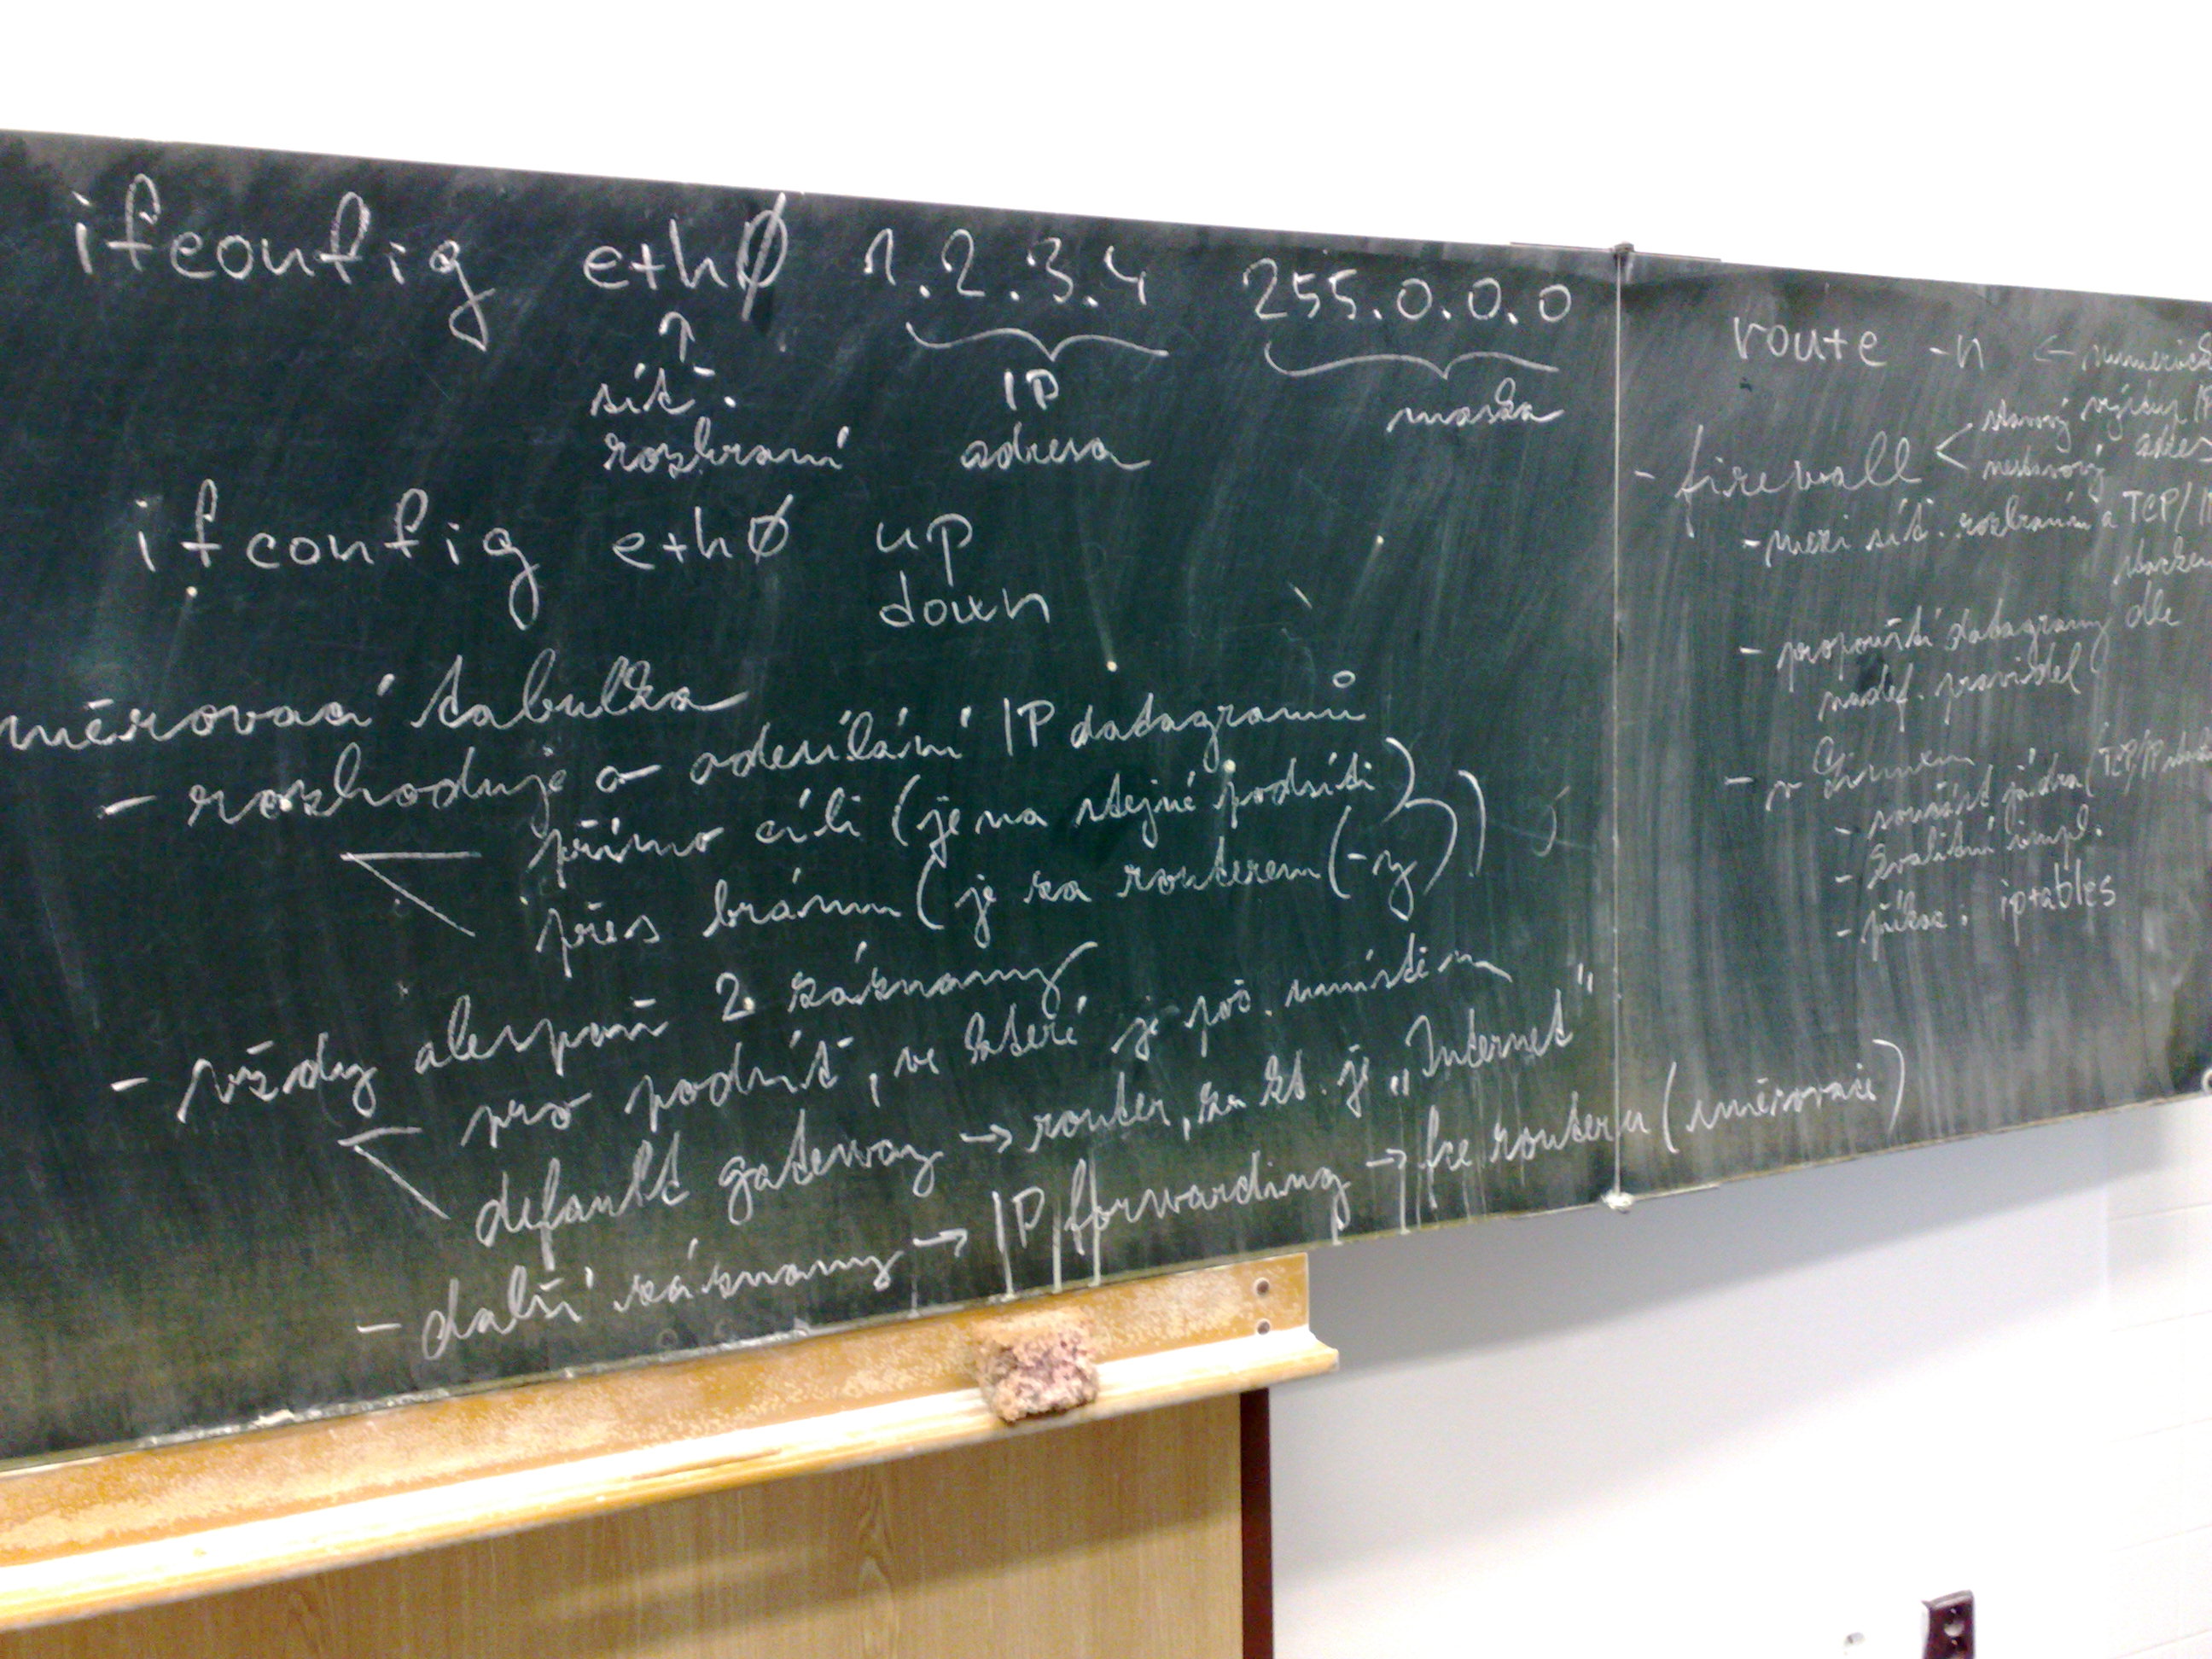 ifconfig eth0 1.2.3.4 255.0.0.0
síť. IP maska
rozhraní adresa
ifconfig eth0 up
down
směrovací tabulka
- rozhoduje o odesílání IP datagramů
přímo cíli (je na stejné podsíti)
přes bránu (je za routerem (-y))
- vždy alespoň 2 záznamy
pro podsíť, ve které je poč. umístěn
default gateway → router, za kt. je „Internet"
- další záznamy → IP forwarding → lze routerů (směrovače)
route -n ←
stavový výstup
- firewall < nestavový
- mezi síť. rozhraním a TCP/
- propouští datagramy dle
nadef. pravidel
- v Linuxu
- součást jádra (TCP/IP
- kvalitní impl.
- příkaz: iptables